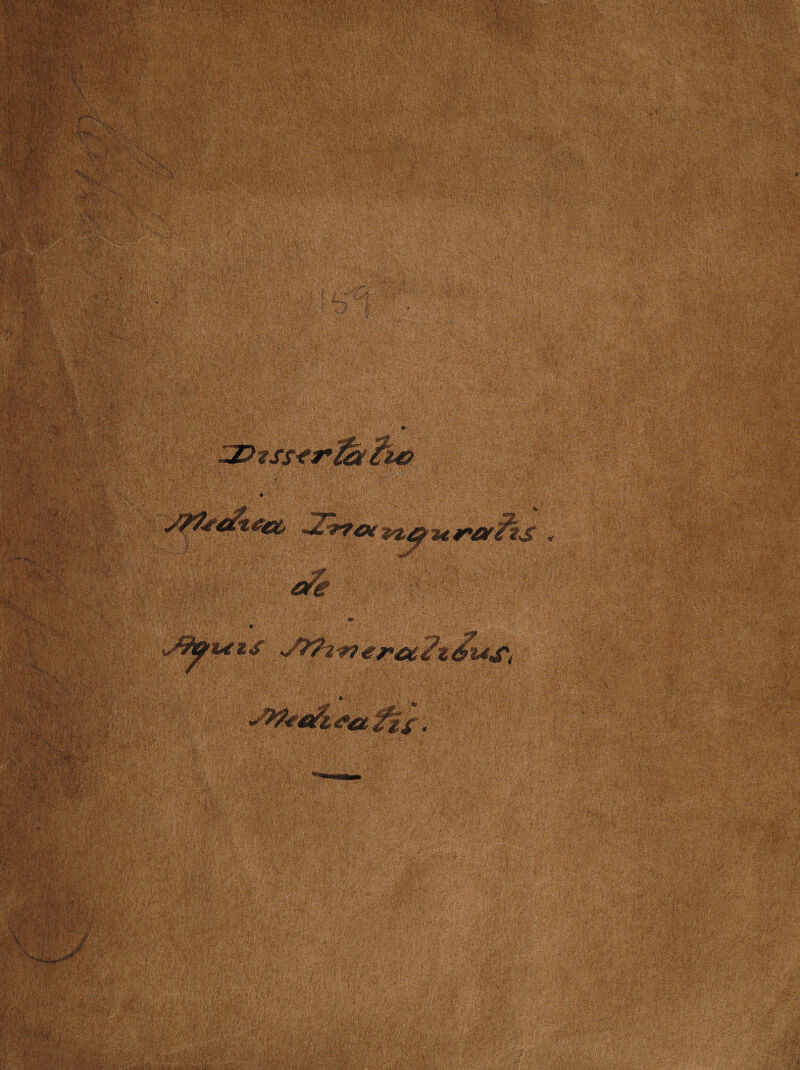 159
Dissertatio
Medica Inanguratis.
de
Aquis Mineralibus,
Medicatis.